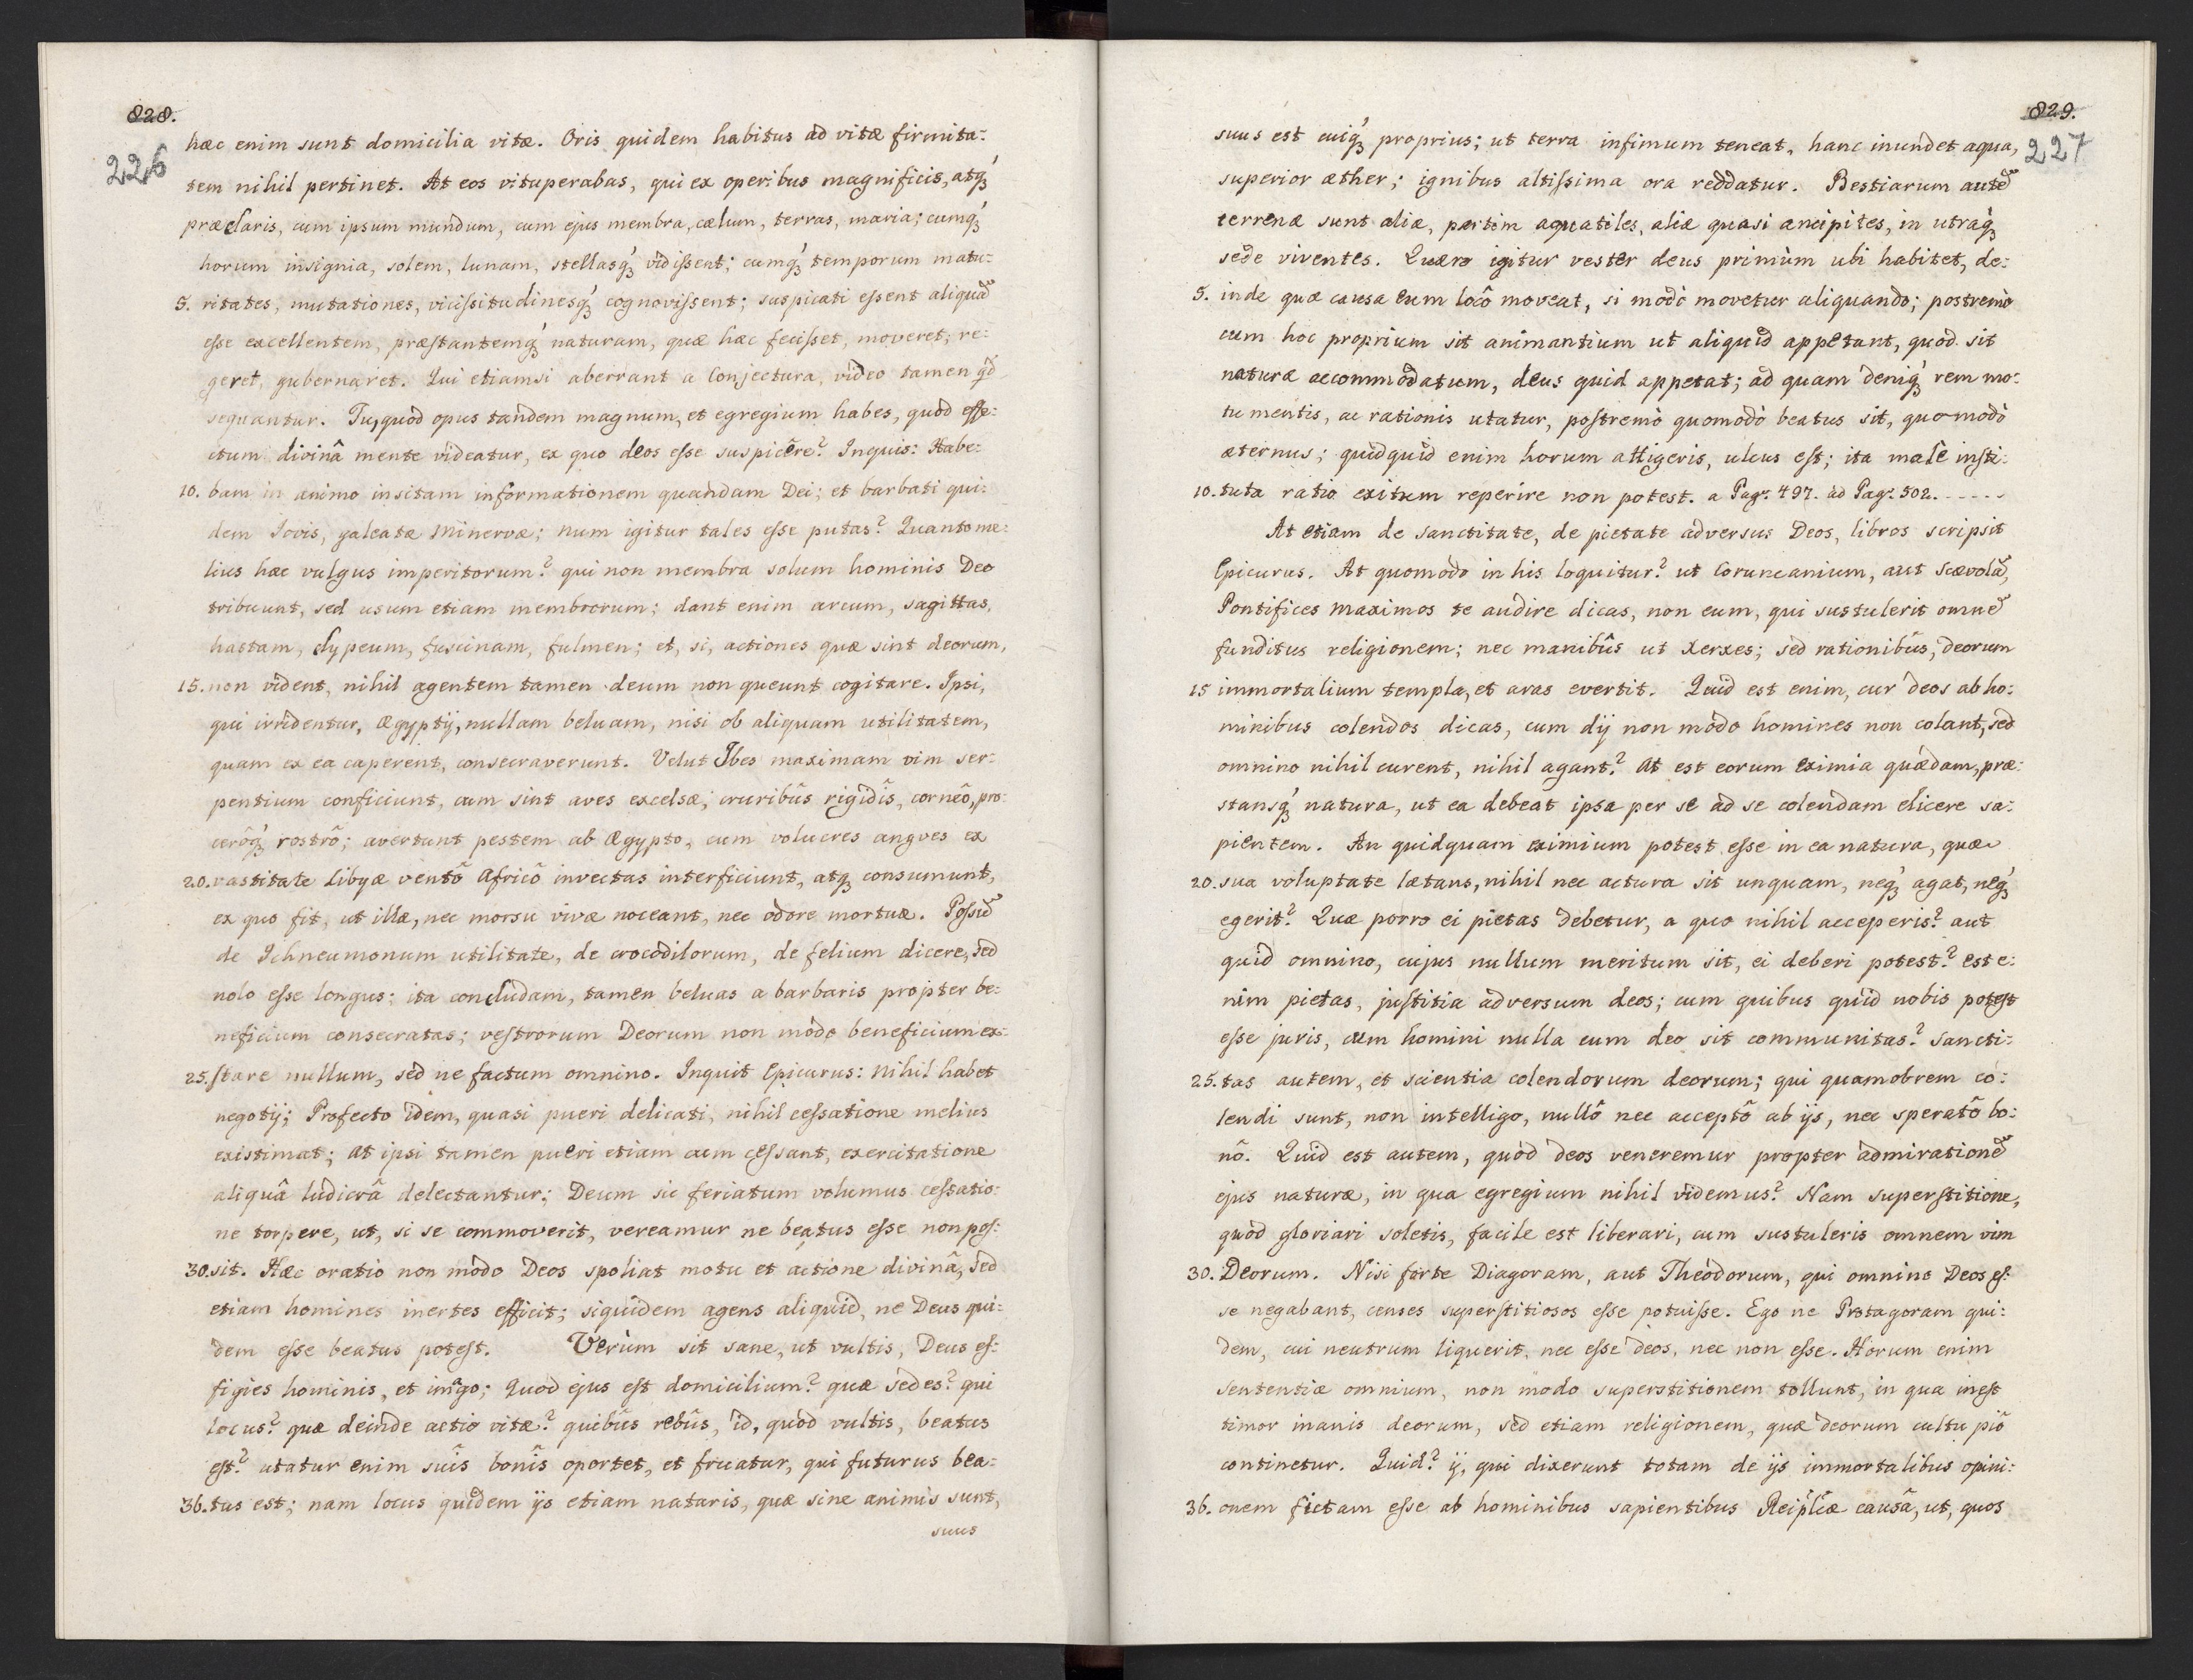 828.
226
hæc enim sunt domicilia vitæ. Oris quidem habitus ad vitæ firmita:
tem nihil pertinet. At eos vituperabas, qui ex operibus magnificis, atq́ꝫ
præclaris, cum ipsum mundum, cum ejus membra, cælum, terras, maria; cumq́ꝫ
horum insignia, solem, lunam, stellasq́ꝫ vidissent; cumq́ꝫ temporum matu:
5. ritates, mutationes, vicissitudinesq́ꝫ cognovissent; suspicati essent aliquã
esse excellentem, præstantemq́ꝫ naturam, quæ hæc fecisset, moveret, re:
geret, gubernaret. Qui etiamsi aberrant a Conjectura, video tamen qd̃
sequantur. Tu, quod opus tandem magnum, et egregium habes, quod effe:
ctum divinâ mente videatur, ex quo deos esse suspicêre? Inquis: Habe:
10. bam in animo insitam informationem quandam Dei; et barbati qui:
dem Jovis, galeatæ Minervæ; num igitur tales esse putas? Quanto me:
lius hæc vulgus imperitorum? qui non membra solum hominis Deo
tribuunt, sed usum etiam membrorum; dant enim arcum, sagittas,
hastam, clypeum, fuscinam, fulmen; et, si, actiones quæ sint deorum,
15. non vident, nihil agentem tamen deum non queunt cogitare. Ipsi,
qui irridentur, Ægyptij, nullam beluam, nisi ob aliquam utilitatem,
quam ex ea caperent, consecraverunt. Velut Ibes maximam vim ser:
pentium conficiunt, cum sint aves excelsæ, cruribûs rigidîs, corneô, pro:
cerôq́ꝫ rostrô; avertunt pestem ab Ægypto, cum volucres angves ex
20. vastitate Libyæ ventô Africô invectas interficiunt, atqꝫ consumunt,
ex quo fit, ut illæ, nec morsu vivæ noceant, nec odore mortuæ. Possũ
de Ichneumonum utilitate, de crocodilorum, de felium dicere, sed
nolo esse longus; ita concludam, tamen beluas a barbaris propter be:
neficium consecratas; vestrorum Deorum non modo beneficium ex:
25. stare nullum, sed ne factum omnino. Inquit Epicurus: Nihil habet
negotij; Profecto idem, quasi pueri delicati, nihil cessatione melius
existimat; at ipsi tamen pueri etiam cum cessant, exercitatione
aliquâ ludicrâ delectantur; Deum sic feriatum volumus cessatio:
ne torpere, ut, si se commoverit, vereamur ne beatus esse non pos:
30. sit. Hæc oratio non modo Deos spoliat motu et actione divinâ, sed
etiam homines inertes efficit; siquidem agens aliquid, ne Deus qui:
dem esse beatus potest. Verùm sit sane, ut vultis, Deus ef:
figies hominis, et imago; Quod ejus est domicilium? quæ sedes? qui
locus? quæ deinde actio vitæ? quibûs rebûs, id, quòd vultis, beatus
est? utatur enim suîs bonîs oportet, et fruatur, qui futurus bea:
36. tus est; nam locus quidem ijs etiam naturis, quæ sine animis sunt,
suus
829.
227
suus est cuiq́ꝫ proprius; ut terra infimum teneat, hanc inundet aqua,
superior æther; ignibus altissima ora reddatur. Bestiarum autẽ
terrenæ sunt aliæ, partim aquatiles, aliæ quasi ancipites, in utraq́ꝫ
sede viventes. Quæro igitur vester deus primùm ubi habitet, de:
5. inde quæ causa eum locô moveat, si modò movetur aliquando; postremò
cum hoc proprium sit animantium ut aliquid appetant, quod sit
naturæ accommodatum, deus quid appetat; ad quam deniq́ꝫ rem mo:
tu mentis, ac rationis utatur, postremò quomodò beatus sit, quomodò
æternus; quidquid enim horum attigeris, ulcus est; ita male insti:
10. tuta ratio exitum reperire non potest. a Pagr. 497. ad Pagr. 502. - - - - -
At etiam de sanctitate, de pietate adversus Deos, libros scripsit
Epicurus. At quomodo in his loquitur? ut Coruncanium, aut Scævolã,
Pontifices Maximos te audire dicas, non eum, qui sustulerit omnẽ
funditus religionem; nec manibûs ut Xerxes; sed rationibûs, deorum
15 immortalium templa, et aras evertit. Quid est enim, cur deos ab ho:
minibus colendos dicas, cum dij non modo homines non colant, sed
omnino nihil curent, nihil agant? At est eorum eximia quædam, præ:
stansq́ꝫ natura, ut ea debeat ipsa per se ad se colendam elicere sa:
pientem. An quidquam eximium potest esse in ea natura, quæ
20. sua voluptate lætans, nihil nec actura sit unquam, neq́ꝫ agat, neq́ꝫ
egerit? Quæ porro ei pietas debetur, a quo nihil acceperis? aut
quid omnino, cujus nullum meritum sit, ei deberi potest? est e:
nim pietas, justitia adversum deos; cum quibus quid nobis potest
esse juris, cum homini nulla cum deo sit communitas? Sancti:
25. tas autem, et scientia colendorum deorum; qui quamobrem co:
lendi sunt, non intelligo, nullô nec acceptô ab ijs, nec speratô bo:
nô. Quid est autem, quòd deos veneremur propter admirationẽ
ejus naturæ, in qua egregium nihil videmus? Nam superstitione,
quòd gloriari soletis, facile est liberari, cum sustuleris omnem vim
30. Deorum. Nisi forte Diagoram, aut Theodorum, qui omnino Deos es:
se negabant, censes superstitiosos esse potuisse. Ego ne Protagoram qui:
dem, cui neutrum liquerit, nec esse deos, nec non esse. Horum enim
sententiæ omnium, non modo superstitionem tollunt, in qua inest
timor inanis deorum, sed etiam religionem, quæ deorum cultu piô
continetur. Quid? ij, qui dixerunt totam de ijs immortalibus opini:
36. onem fictam esse ab hominibus sapientibus Reiplicæ causâ, ut, quos